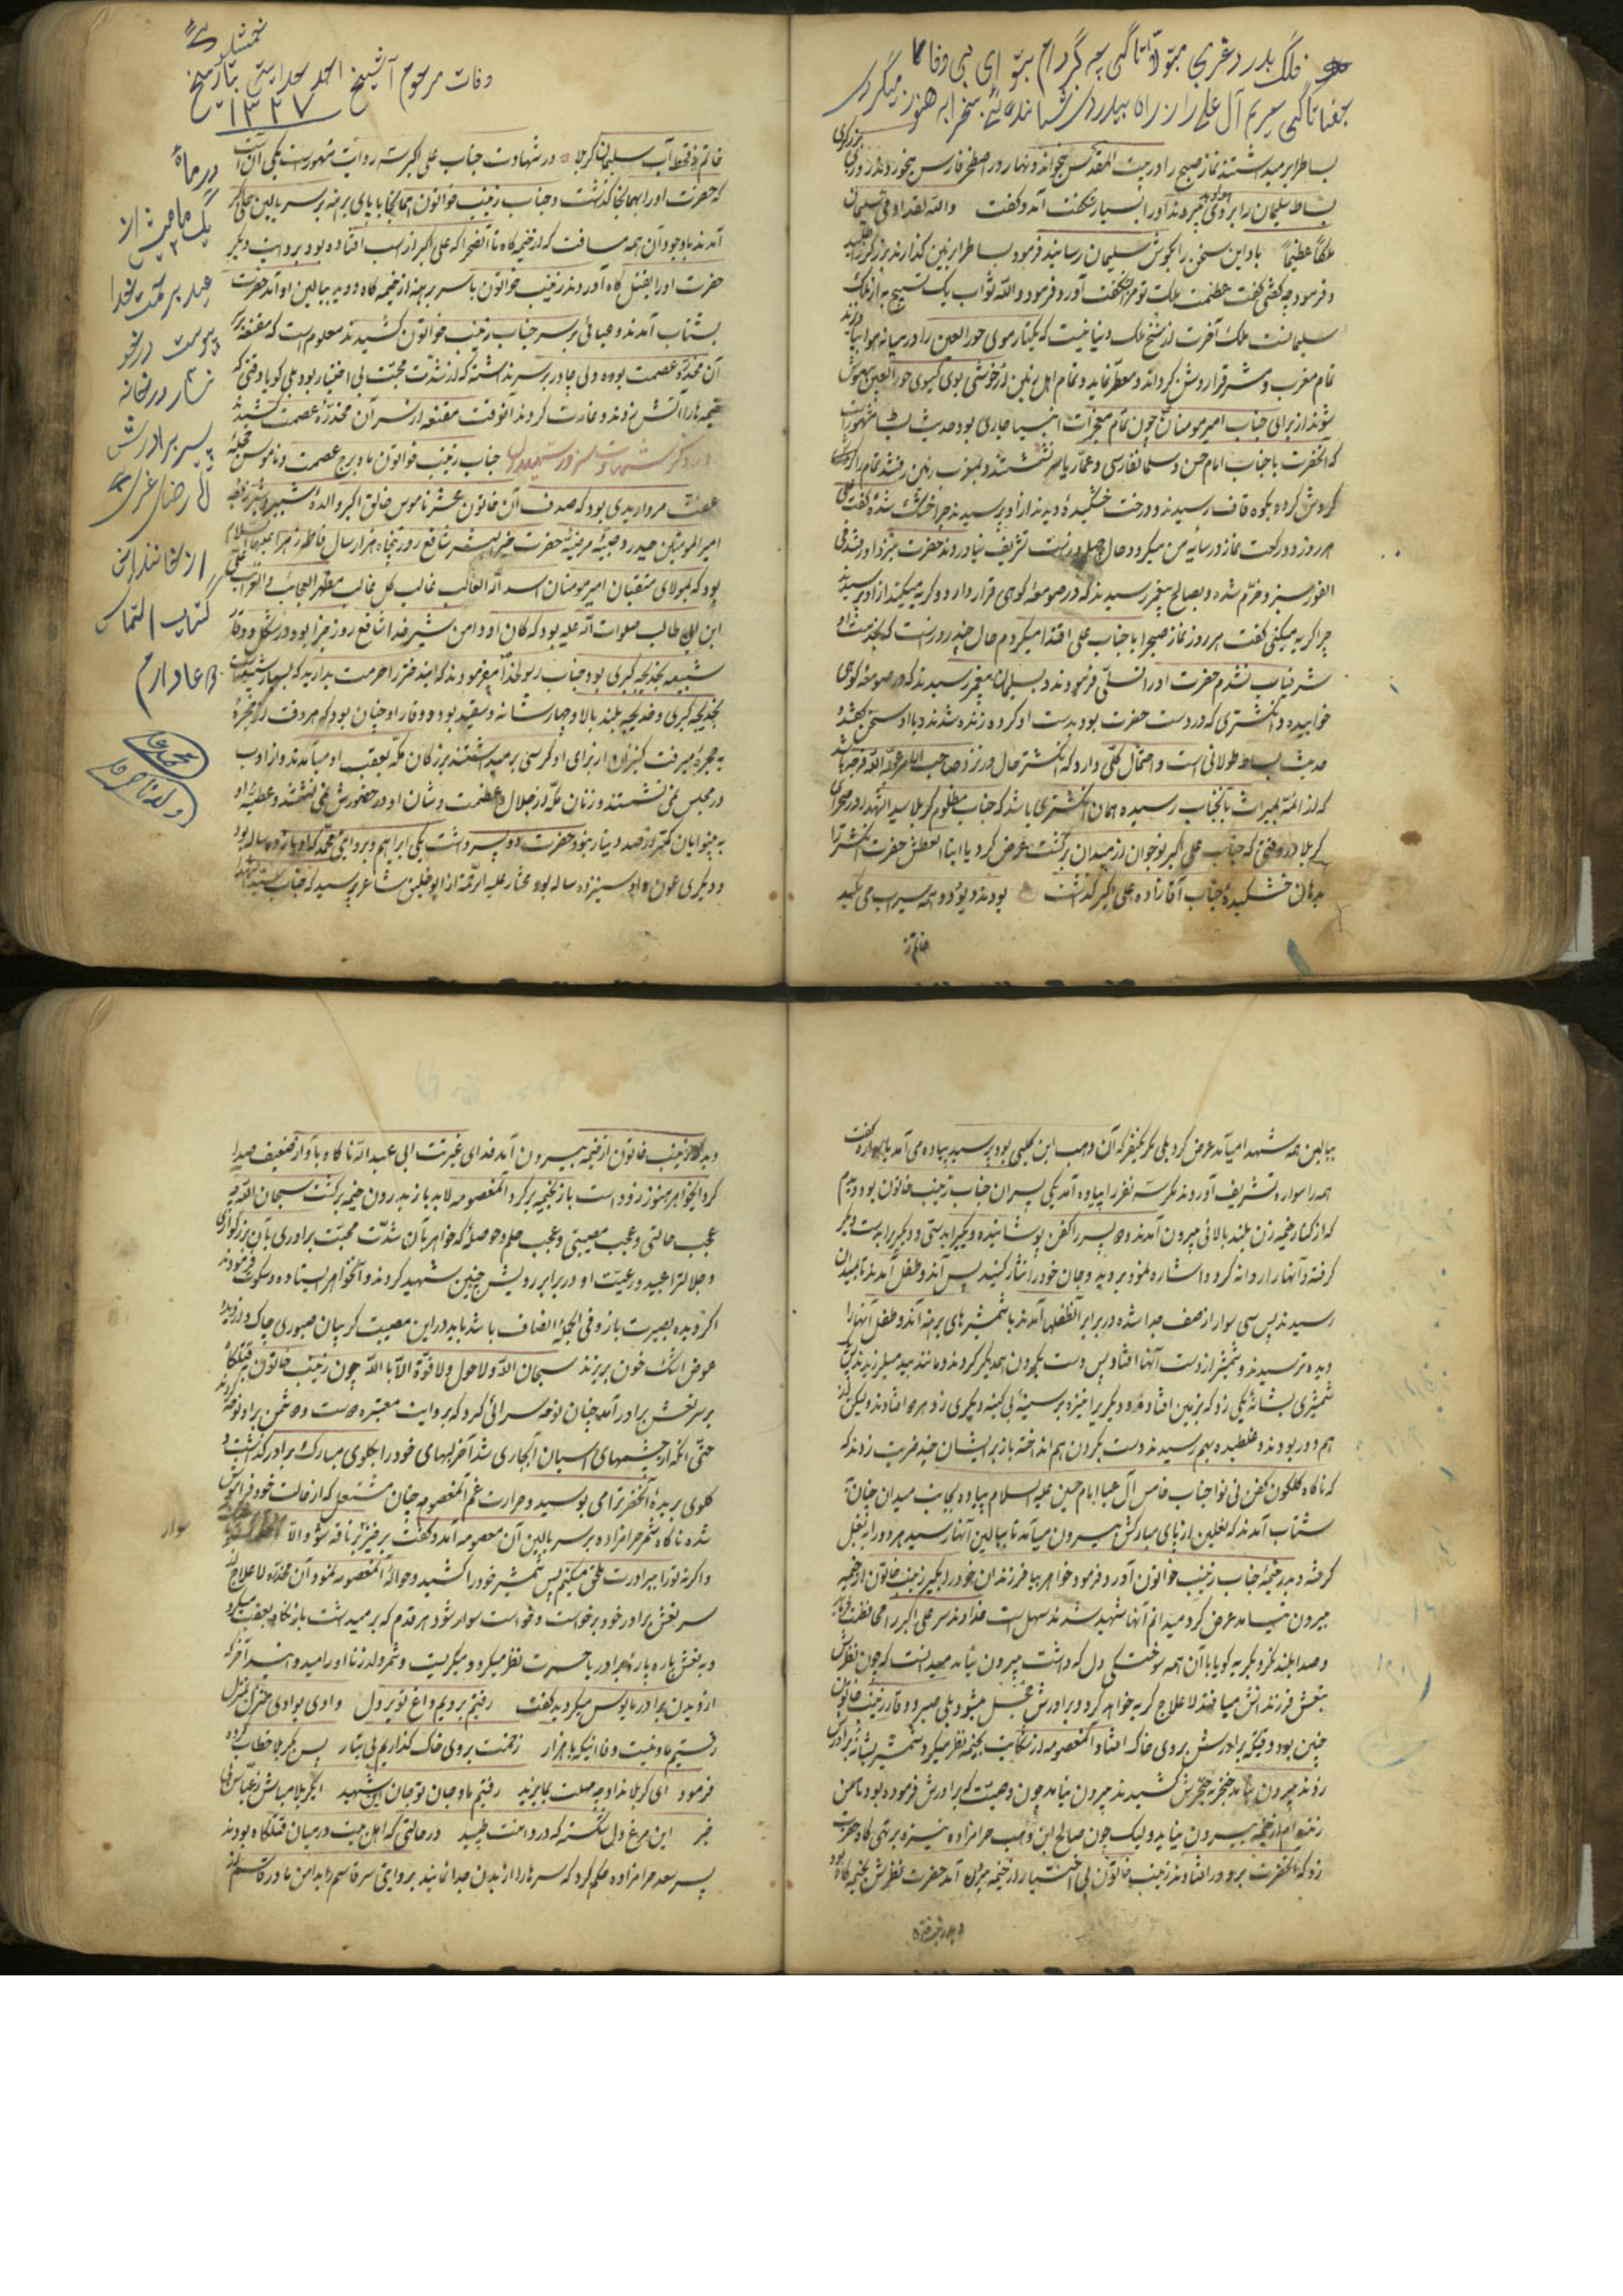 فلک بدر دغربی بتو لا تا کی چه گردانم بتو ای بی وفا
جفا تا کی حریم آل علی را از راه بیدردی نشانده‌ئی بخرابه هنوز میگردی
بساط را بر میداشتند نماز صبح را در بیت المقدس میخواند و نهار در اصطخر فارس میخوردند روزی
بساط سلیمان را بر روی میبردند او را بسیار شگفت آمد و گفت والله لقد اوتی سلیمان
ملکا عظیما باد این سخن را بگوش سلیمان رسانید فرمود بساط را بزمین گذارند بزرگر را
و فرمود چه گفتی گفت عظمت ملک تو مرا بشگفت آورد فرمود والله ثواب یک تسبیح به از ملک
سلیمانست ملک آخرت از سنخ ملک دنیا نیست که یکتار موی حور العین را در میانه هوا
تمام مغرب و مشرق را روشن گرداند و معطر نماید و تمام اهل زمین از خوشی بوی گیسوی حور العین بیهوش
شوند از برای جناب امیر مومنان چون تمام معجزات انبیا جاری بود حدیث بساط مشهور است
که آنحضرت با جناب امام حسن و سلمان فارسی و عمار یاسر نشستند و بمغرب زمین رفتند تمام را
گردش کرده بکوه قاف رسیدند و درخت خشکیده دیدند از او پرسیدند چرا خشک شده گفت علی
هر روز دو رکعت نماز در سایه من میکرد و حال چهل روز است تشریف نیاوردند حضرت
الفور سبز و خرم شده و بصالح پیغمبر رسیدند که در صومعه کوهی قرار دارد و گریه میکند از او پرسیدند
چرا گریه میکنی گفت هر روز نماز صبح را با جناب علی اقتدا میکردم حال چند روز است که بخدمت او
شرفیاب نشدم حضرت او را تسلی فرمودند و بسلیمان پیغمبر رسیدند که در صومعه کوهی
خوابیده و انگشتری که در دست حضرت بود بدست او کرده زنده شدند و با او سخن گفتند
حدیث بساط طولانی است و احتمال کلی دارد که انگشتر حال در نزد صاحب الامر عجل الله فرجه باشد
که از ائمه بمیراث بآنجناب رسیده همان انگشتری باشد که جناب مظلوم کربلا سید الشهدا در صحرای
کربلا در وقتی که جناب علی اکبر نوجوان از میدان برگشت عرض کرد یا ابتا العطش حضرت انگشتر را
بدهان خشکیده جناب آقا زاده علی اکبر گذاشت بودند دیو و دد همه سیراب و می مکید
خاتم ز
وفات مرحوم آشیخ احمد بتاریخ
۱۳۲۷
در ماه
یک ماه پیش از
عید برحمت خدا
پیوست
در خانه
پسر برادرش
از خوانندان این
کتاب التماس
دعا دارم
خاتم ز قحط آب سلیمان کربلا در شهادت جناب علی اکبر سه روایت مشهور است یکی آن است
که حضرت او را بهمانجا گذاشت و جناب زینب خواتون همانجا با پای برهنه بر سر بالین علی اکبر
آمدند با وجود آن همه مسافت که از خیمه گاه تا آنصحرا که علی اکبر از اسب افتاده بود بروایت دیگر
حضرت او را بقتل گاه آوردند زینب خواتون با سر برهنه از خیمه گاه دوید ببالین او آمد حضرت
بشتاب آمدند و عبائی بر سر جناب زینب خواتون کشیدند معلوم است که مقنعه بر سر
آن مخدره عصمت بوده ولی چادر بر سر نداشته که از شدت محبت بی اختیار بود بلی گویا وقتی که
خیمه ها را آتش زدند و غارت کردند آنوقت مقنعه از سر آن مخدره عصمت کشیدند
در ذکر شهادت جناب زینب خواتون با و برج عصمت و ناموس حجله
عفت مرواریدی بود که صدف آن خاتون محشر ناموس خالق اکبر والده شبیر و شبر زوجه
امیر المومنین حیدر و صبیه مرضیه حضرت خیر البشر شافع روز پنجاه هزار سال فاطمه زهرا علیها السلام
بود که مولای متقیان امیر مومنان اسد الله الغالب غالب کل غالب مظهر العجائب و الغرائب علی
ابن ابی طالب صلوات الله علیه بود که کان او و دامن شیر خدا شافع روز جزا بود و در شکل و وقار
شبیه بخدیجه کبری بود جناب رسول خدا میفرمودند که ایندختر را حرمت بدارید که بسیار شبیه است
بخدیجه کبری و خدیجه بلند بالا و چهار شانه و سفید بود و وقار او چنان بود که هر وقت از حجره
به حجره میرفت کنیزان از برای او کرسی بر میداشتند بزرگان مکه بعقب او میآمدند و از ادب
در مجلس نمی نشستند و زنان مکه از جلال و عظمت و شان او در حضورش نمی نشستند و عطیه او
به بینوایان کمتر از صد دینار نبود حضرت دو پسر داشت یکی ابراهیم و بروایتی محمد که او یازده ساله بود
و دیگری عون و او سیزده ساله بود مختار علیه الرحمه از ابو خلیق شاعر پرسید که جناب سید الشهدا
ببالین همه شهدا میآمد عرض کرد بلی مگر یکنفر که آن وهب ابن کلبی بود پرسید پیاده می آمد یا سواره گفت
همه را سواره تشریف آوردند مگر سه نفر را پیاده آمد یکی پسران جناب زینب خاتون بود دیدم
که از کنار خیمه زن بلند بالائی بیرون آمدند دو پسر را کفن پوشانیده و یکیرا بدستی و دیگریرا بدست دیگر
گرفته و آنها را روانه کرد و اشاره نمود بروید و جان خود را نثار کنید پس آندو طفل آمدند تا بمیدان
رسیدند پس سی سوار از صف جدا شده در برابر آنطفلها آمدند با شمشیرهای برهنه آندو طفل آنها را
دیده ترسیدند و شمشیر از دست آنها افتاد پس دست بگردن همدیگر کردند و مانند بید میلرزیدند پس
شمشیری بشانه یکی زد که بزمین افتاد و دیگریرا نیزه بر سینه بی کینه دیگری زد هر دو افتادند ولیکن از
هم دور بودند و غلطیده بهم رسیدند دست بگردن هم انداخته باز بر ایشان چند ضربت زدند که
که ناگاه گلگون کفن نی نوا جناب خامس آل عبا امام حسین علیه السلام پیاده بجانب میدان چنان
شتاب آمدند که نعلین از پای مبارکش بیرون میآمد تا ببالین آنها رسید هر دو را به بغل
گرفته و بدر خیمه جناب زینب خواتون آورد و فرمود خواهر بیا فرزندان خود را بگیر زینب خاتون از خیمه
بیرون نیامد عرض کرد میدانم آنها شهید شدند سهل است خداوند سر علی اکبر را محافظت نماید
و صدا بلند نکرد بگریه گویا با آن همه سوختگی دل که داشت بیرون نیامد میدانست که چون نظرش
بنعش فرزندانش میافتد لا علاج گریه خواهد کرد و برادرش خجل میشود بلی صبر و وقار زینب خاتون
چنین بود وقتیکه برادرش بروی خاک افتاد آنمعصومه از شکایت بخیمه نظر میکرد شمشیر بشانه برادرش
زدند بیرون نیامد خنجر بحنجرش کشیدند بیرون نیامد چون وصیت که برادرش فرموده بود تا من
زنده ام از خیمه بیرون نیاید ولیک چون صالح ابن وهب حرامزاده نیزه بر تهی گاه حضرت
زد که آنحضرت برو در افتادند زینب خاتون بی اختیار از خیمه بیرون آمد حضرت نظرش بخیمه گاه بود
دید زینب خاتون از خیمه بیرون آمد فدای غیرتت ابی عبدالله ناگاه باواز ضعیف صدا
کرد ایخواهر هنوز زود است باز بخیمه برگرد آنمعصومه لابد باز بدرون خیمه برگشت سبحان الله چه
عجب حالتی و عجب مصیبتی و عجب حلم و حوصله که خواهر بآن شدت محبت برادری بآن بزرگواری
و جلالترا عبید و رعیت او در برابر رویش چنین شهید کردند و آنخواهر ایستاده و سکوت فرمودند
اگر دیده بصیرت باز و فی الجمله انصاف باشد باید در این مصیبت گریبان صبوری چاک و از دیده
عوض اشک خون بریزند سبحان الله و لا حول و لا قوة الا بالله چون زینب خاتون بقتلگاه
بر سر نعش برادر آمد چنان نوحه سرائی کرد که بروایت معتبره دوست و دشمن بر او نوحه کردند
حتی آنکه از چشمهای اسبان آبجاری شد آخر لبهای خود را بگلوی مبارک برادر گذاشت و
گلوی بریده آنحضرترا می بوسید و حرارت غم آنمعصومه چنان مشتعل که از حالت خود فراموش
شده ناگاه شمر حرامزاده بر سر بالین آن معصومه آمد و گفت برخیز بر ناقه شو والا
سوار
و اگر نه تو را ببرادرت ملحق میکنم پس شمشیر خود را کشید و حواله آنمعصومه نمود آن مخدره لا علاج از
سر نعش برادر خود برخواست و خواست سوار شود هر قدم که بر میداشت باز نگاه بعقب میکرد
و به نعش پاره پاره برادر با حسرت نظر میکرد و میگریست و شمر ولد زنا او را میدواند آخر که
از دیدن برادر مایوس میگردید گفت رفتیم بردیم داغ تو بر دل وادی بوادی منزل بمنزل
رفتیم ما و نیست وفا اینکه با هزار زخمت بروی خاک گذاریم بی مزار پس بکربلا خطاب کرده
فرمود ای کربلا نداد چو مهلت بما یزید رفتیم ما و جان تو جان این شهید ای کربلا مباش ز عباس بی
خبر این مرغ دل شکسته که در دامنت طپید در حالتی که اهل بیت در میان قتلگاه بودند
پسر سعد حرامزاده حکم کرد که سرها را از بدن جدا نمایند بروایتی سر قاسم را بدامن مادر قاسم